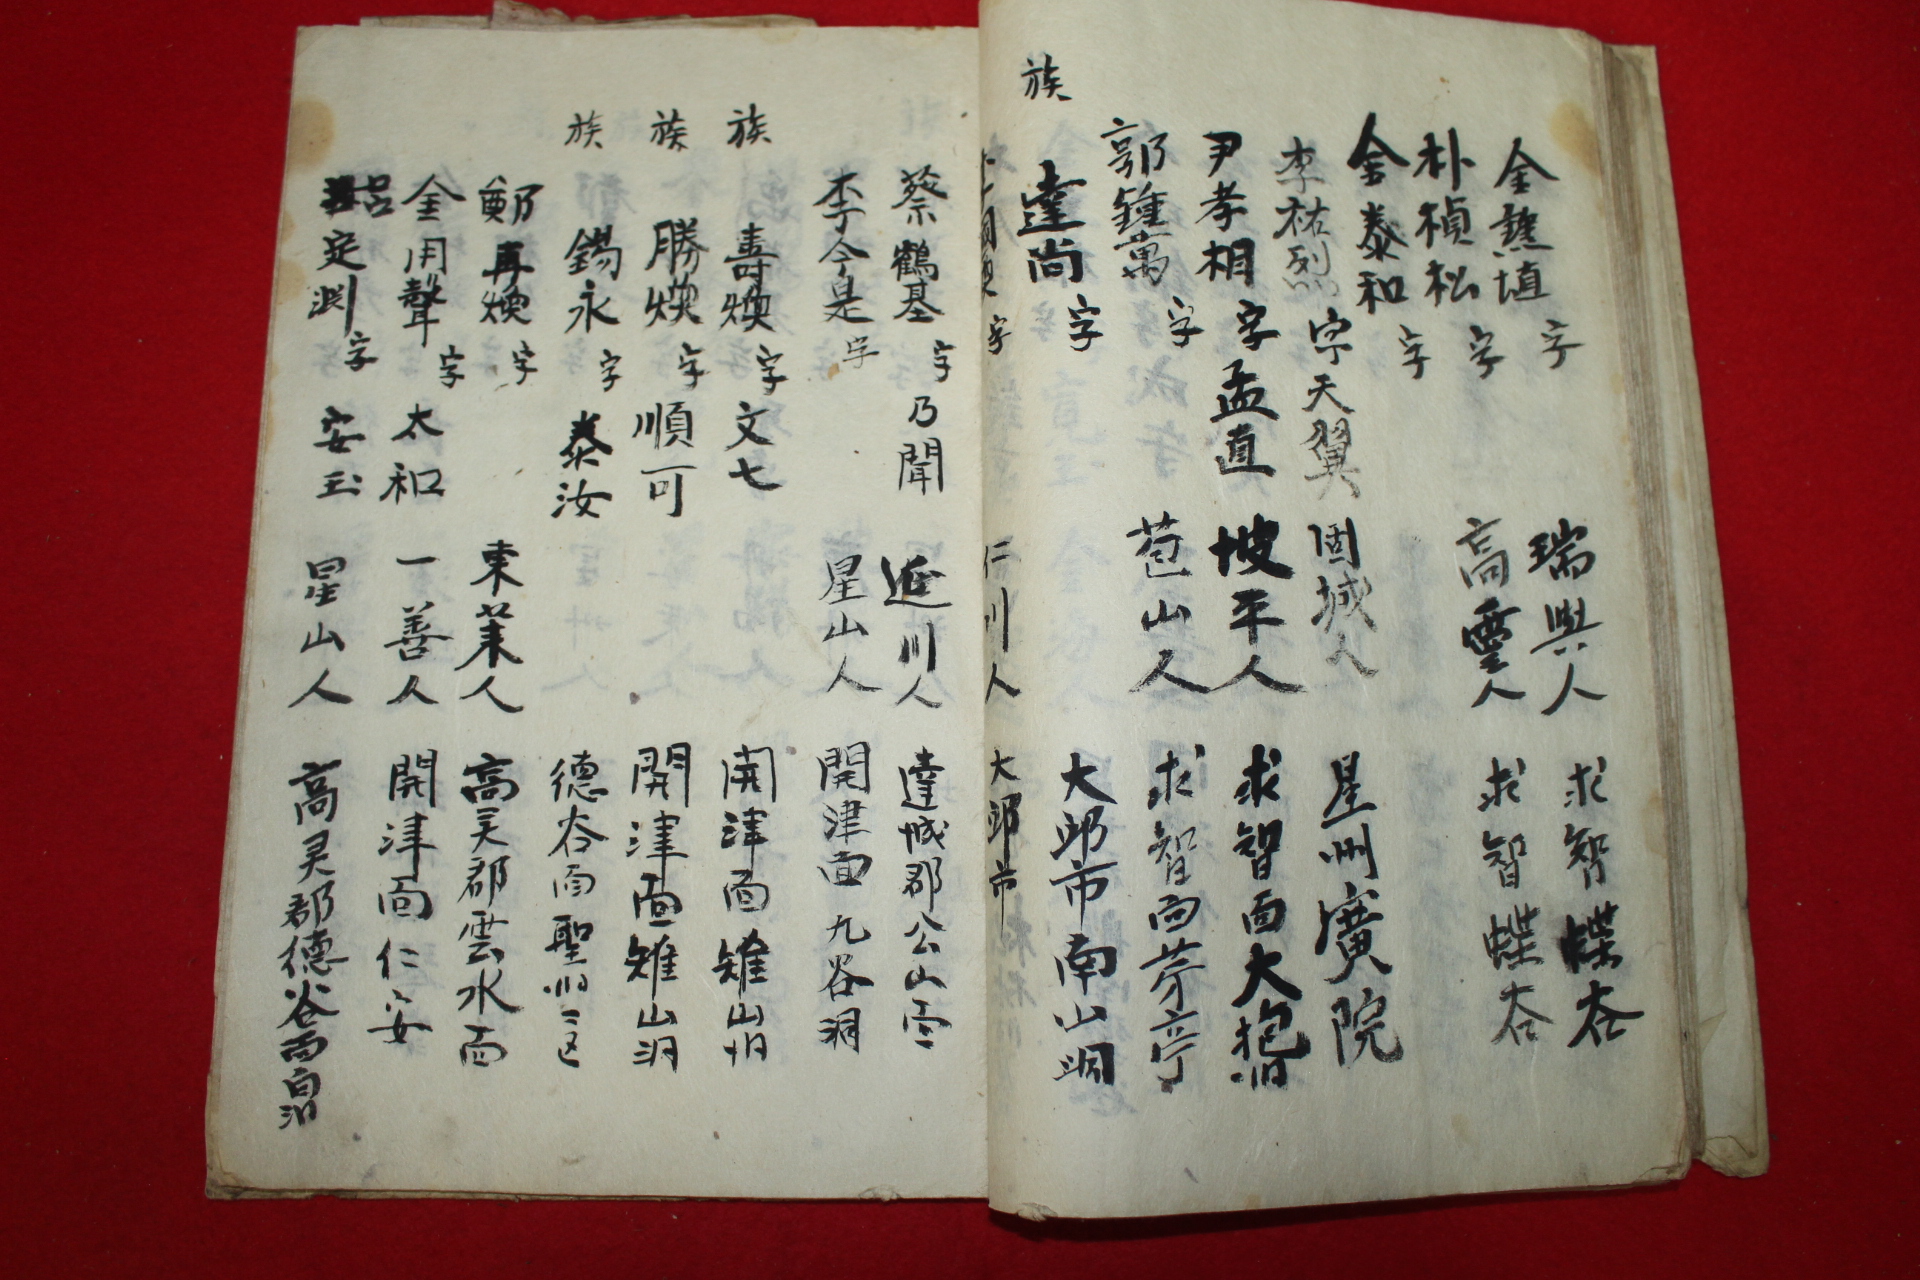 金鍾埴 字 瑞興人 求智 蝶谷
朴楨松 字 高靈人 求智 蝶谷
金泰和 字
李祐烈 字 天翼 固城人 星州 廣院
尹孝相 字 孟直 坡平人 求智面大抱洞
郭鍾萬 字 苞山人 求智面芳亭
族 達尚 字 大邱市南山洞
字 仁川人 大邱市
蔡鶴基 字 乃聞 延川人 達城郡公山面
李今是 字 星山人 開津面九谷洞
族 壽煥 字 文七 開津面雉山洞
族 勝煥 字 順可 開津面雉山洞
族 錫永 字 泰汝 德谷面聖洲二區
鄭再煥 字 東萊人 高灵郡雲水面
金用聲 字 太和 一善人 開津面仁安
呂定淵 字 安玉 星山人 高灵郡德谷面